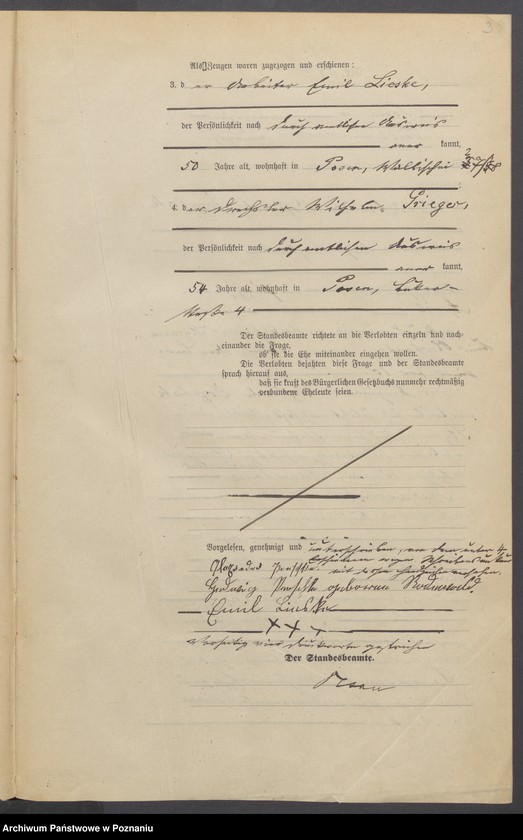 Als Zeugen waren zugezogen und erschienen:
3. der Arbeiter Emil Lieske,
der Persönlichkeit nach durch amtlichen Ausweis
aner kannt,
50 Jahre alt, wohnhaft in Posen, Wallischei
4. der Drechsler Wilhelm Prieger,
der Persönlichkeit nach durch amtlichen Ausweis
aner kannt,
54 Jahre alt, wohnhaft in Posen,
straße 4
Der Standesbeamte richtete an die Verlobten einzeln und nach-
einander die Frage,
ob sie die Ehe miteinander eingehen wollen.
Die Verlobten bejahten diese Frage und der Standesbeamte
sprach hierauf aus,
daß sie kraft des Bürgerlichen Gesetzbuchs nunmehr rechtmäßig
verbundene Eheleute seien.
Vorgelesen, genehmigt und unterschrieben, von dem unter 4
wegen
mit
Hedwig geborene
Emil Lieske
XXX
Vorseitig vier Druckworte gestrichen
Der Standesbeamte.
Archiwum Państwowe w Poznaniu